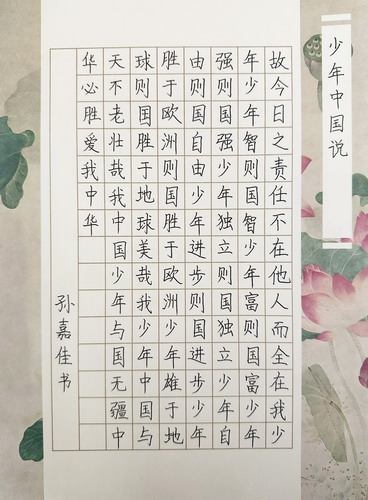 少年中国说
故今日之责任不在他人而全在我少
年少年智则国智少年富则国富少年
强则国强少年独立则国独立少年自
由则国自由少年进步则国进步少年
胜于欧洲则国胜于欧洲少年雄于地
球则国胜于地球美哉我少年中国与
天不老壮哉我中国少年与国无疆中
华必胜爱我中华
孙嘉佳书